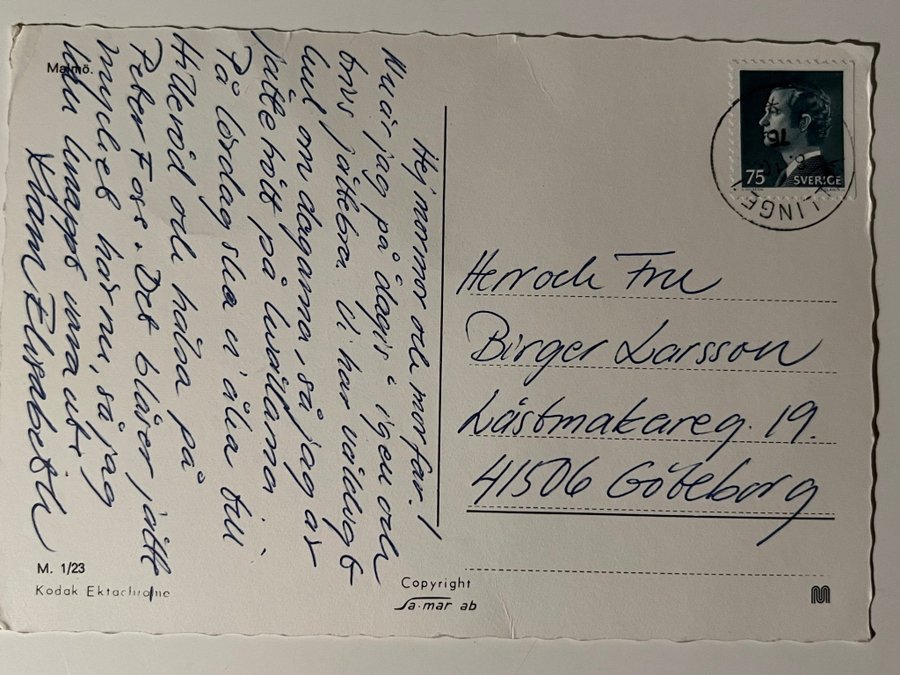 Malmö.
Hej mormor och morfar!
Nu är jag på dagis igen och
trivs jättebra. Vi har väldigt
kul om dagarna, så jag är
jättetrött på kvällarna
På lördag ska vi åka till
Hilleröd och hälsa på
Peter Foss. Det blåser jätte
mycket här nu, så jag
kan knappt vara ute
Kram Elisabeth
75 SVERIGE
LINGE
76
Herr och Fru
Birger Larsson
Låstmakareg. 19.
41506 Göteborg
M. 1/23
Kodak Ektachrome
Copyright
Sa-mar ab